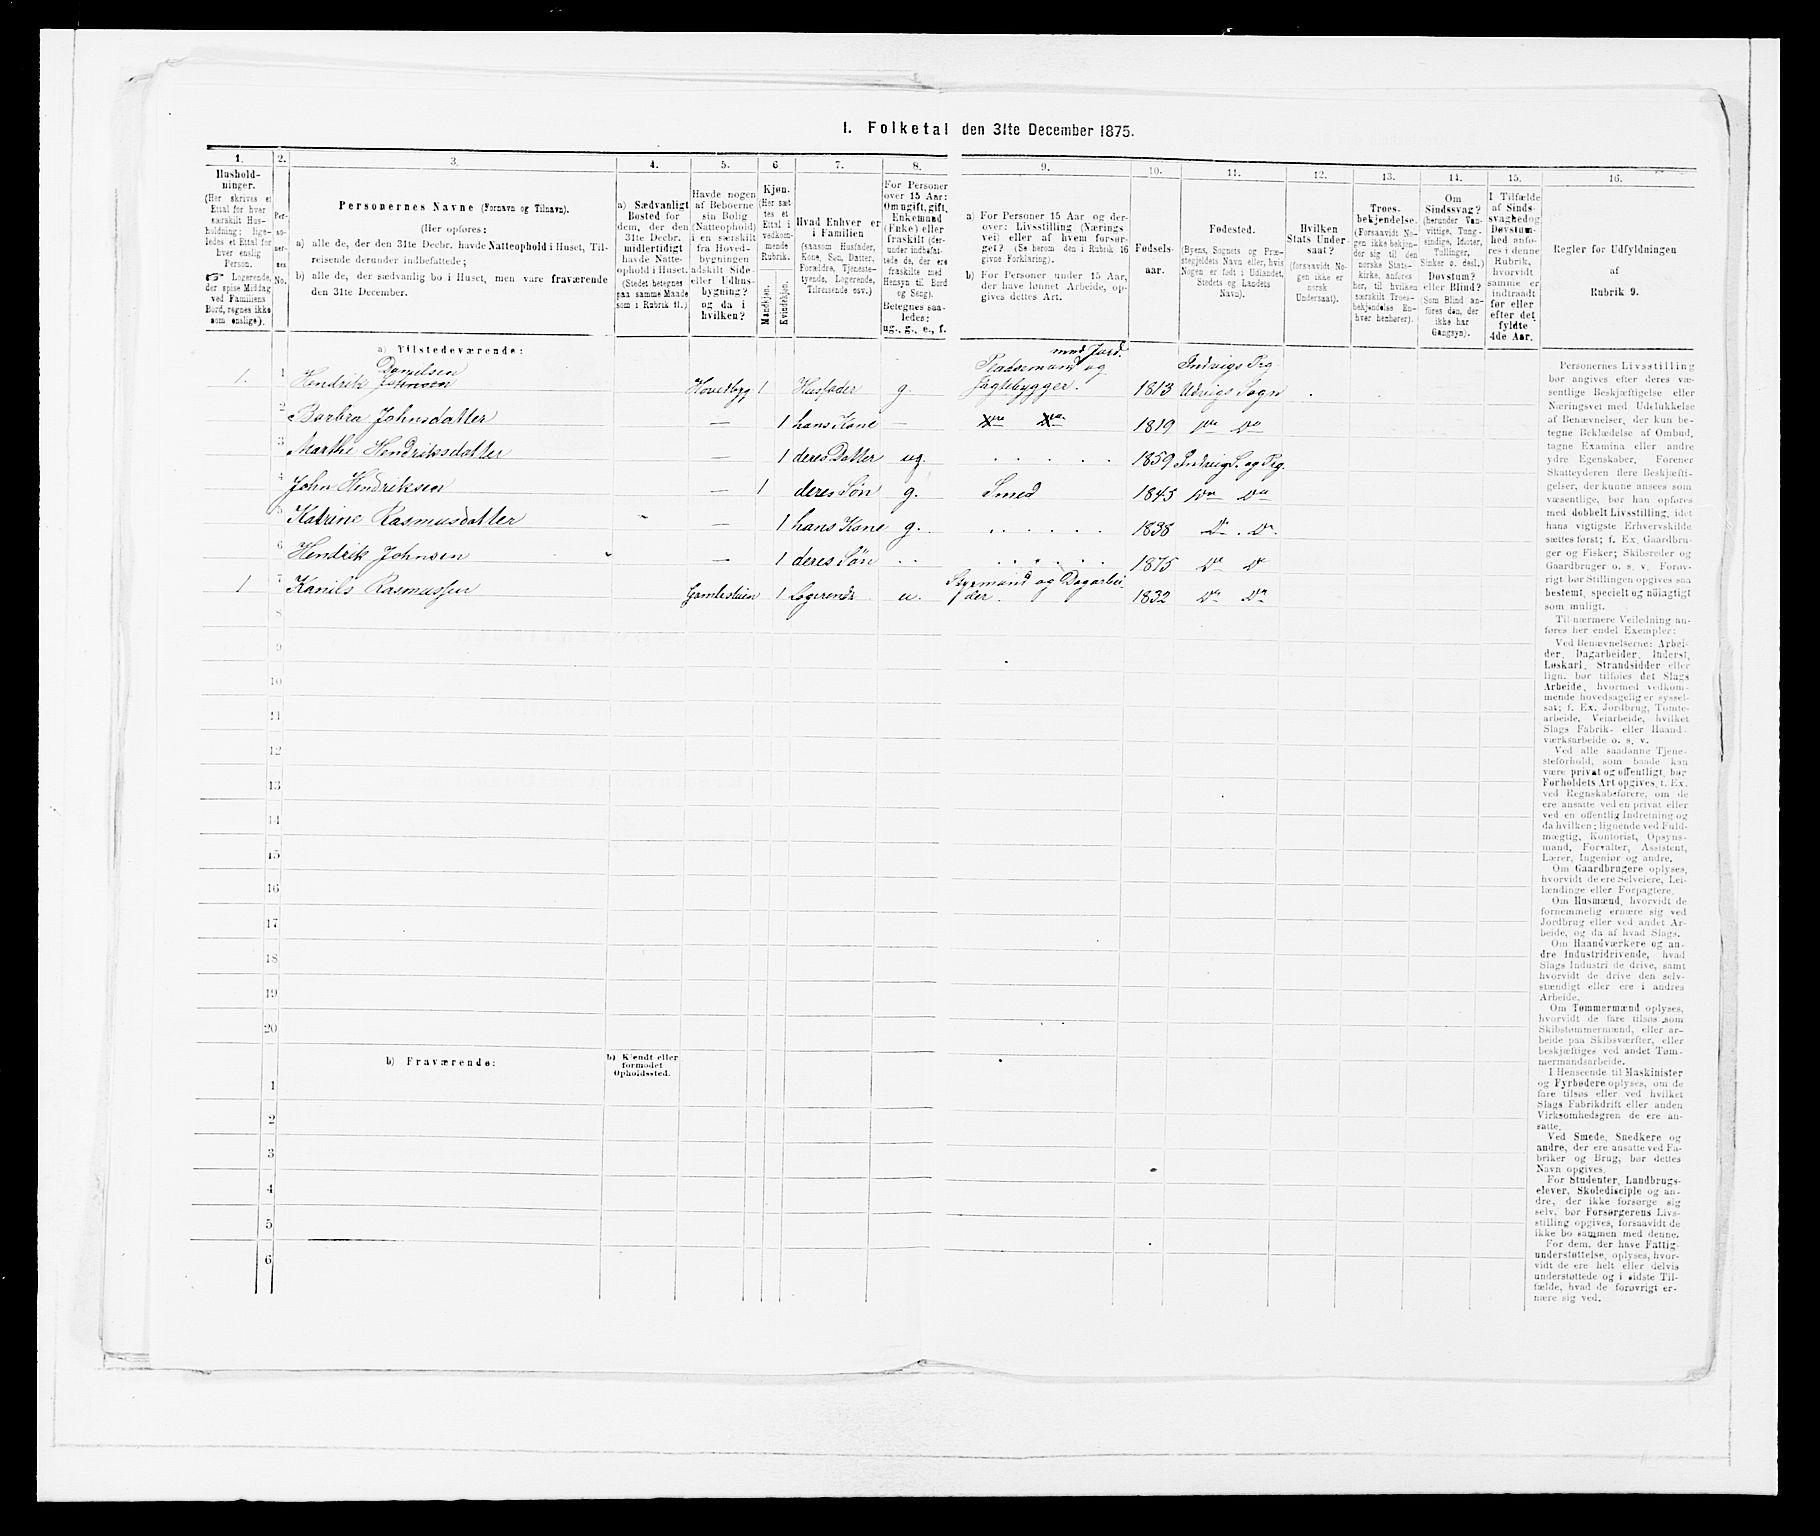 I. Folketal den 31te December 1875.
1. 2. 3. 4. 5. 6 7. 8. 9. 10. 11. 12. 13. 14. 15. 16.
Hushold-
ninger.
(Her skrives et
Ettal for hver
særskilt Hus-
holdning; lige-
ledes et Ettal for
hver enslig
Person.
☞ Logerende,
der spise Middag
ved Familiens
Bord, regnes ikke
som enslige).
Per-
so-
ner-
nes
No.
Personernes Navne (Fornavn og Tilnavn).
(Her opføres:
a) alle de, der den 31te Decbr. havde Natteophold i Huset, Til-
reisende derunder indbefattede;
b) alle de, der sædvanlig bo i Huset, men vare fraværende
den 31te December.
a) Sædvanligt
Bosted for
dem, der den
31te Decbr.
midlertidigt
havde Natte-
ophold i Huset.
(Stedet betegnes
paa samme Maade
som i Rubrik 11.)
Havde nogen
af Beboerne
sin Bolig
(Natteophold)
i en særskilt
fra Hoved-
bygningen
adskilt Side-
eller Udhus-
bygning?
og da i
hvilken?
Kjøn.
(Her sæt-
tes et
Ettal i
vedkom-
mende
Rubrik.
Mandkjøn.
Kvindekjøn.
Hvad Enhver er
i Familien
(saasom Husfader,
Kone, Søn, Datter,
Forældre, Tjeneste-
tyende, Logerende,
Tilreisende osv.)
For Personer
over 15 Aar:
Om ugift, gift,
Enkemand
(Enke) eller
fraskilt (der-
under indbefat-
tede de, der ere
fraskilte med
Hensyn til Bord
og Seng).
Betegnes saa-
ledes:
ug., g., e., f.
a) For Personer 15 Aar og der-
over: Livsstilling (Nærings-
vei) eller af hvem forsør-
get? (Se herom den i Rubrik 16
givne Forklaring).
b) For Personer under 15 Aar,
der have lønnet Arbeide, op-
gives dettes Art.
Fødsels-
aar.
Fødested.
(Byens, Sognets og Præ-
stegjeldets Navn eller, hvis
Nogen er født i Udlandet,
Stedets og Landets
Navn).
Hvilken
Stats Under-
saat?
(forsaavidt No-
gen ikke er
norsk
Undersaat).
Troes-
bekjendelse.
(Forsaavidt No-
gen ikke bekjen-
der sig til den
norske Stats-
kirke, anføres
her, til hvilken
særskilt Troes-
bekjendelse En-
hver henhører).
Om
Sindssvag?
(herunder Van-
vittige, Tung-
sindige, Idioter,
Tullinger,
Sinker o. desl.)
Døvstum?
eller Blind?
(Som Blind an-
føres den, der
ikke har
Gangsyn).
I Tilfælde
af Sinds-
svaghed og
Døvstum-
hed anfø-
res i denne
Rubrik,
hvorvidt
samme er
indtraadt
før eller
efter det
fyldte
4de Aar.
Regler for Udfyldningen
af
Rubrik 9.
a) Tilstedeværende:
Danielsen med Jord. Indvigs Prg
1. 1 Hendrik Johnsen Hovedbyg 1 Husfader g. Pladsemand og Jagtebygger. 1813 Udvigs Sogn
2 Barbra Johnsdatter — 1 hans Kone — 1819 Do Do
3 Marthe Hendriksdatter — 1 deres Datter ug. 1859 Indvig S. og Prg.
4 John Hendriksen — 1 deres Søn g. Smed 1845 Do Do
5 Katrine Rasmusdatter — 1 hans Kone g. 1838 Do Do
6 Hendrik Johnsen — 1 deres Søn 1875 Do Do
1 7 Kanils Rasmussen 1 Logerende u. Styrmand og Dagarbei
der. 1832 Do Do
8
9
10
11
12
13
14
15
16
17
18
19
20
b) Fraværende:
b) Kjendt eller
formodet
Opholdssted.
1
2
3
4
5
6
Personernes Livsstilling
bør angives efter deres væ-
sentlige Beskjæftigelse eller
Næringsvei med Udelukkelse
af Benævnelser, der kun be-
tegne Beklædelse af Ombud,
tagne Examina eller andre
ydre Egenskaber. Forener
Skatteyderen flere Beskjæfti-
gelser, der kunne ansees som
væsentlige, bør han opføres
med dobbelt Livsstilling, idet
hans vigtigste Erhvervskilde
sættes først; f. Ex. Gaardbru-
ger og Fisker; Skibsreder og
Gaardbruger o. s. v. Forøv-
rigt bør Stillingen opgives saa
bestemt, specielt og nøiagtigt
som muligt.
Til nærmere Veiledning an-
føres her endel Exempler:
Ved Benævnelserne: Arbei-
der, Dagarbeider, Inderst,
Løskarl, Strandsidder eller
lign. bør tilføies det Slags
Arbeide, hvormed vedkom-
mende hovedsagelig er syssel-
sat; f. Ex. Jordbrug, Tomte-
arbeide, Veiarbeide, hvilket
Slags Fabrik- eller Haand-
værksarbeide o. s. v.
Ved alle saadanne Tjene-
steforhold, som baade kan
være privat og offentligt, bør
Forholdets Art opgives, f. Ex.
ved Regnskabsførere, om de
ere ansatte ved en privat eller
ved en offentlig Indretning og
da hvilken; lignende ved Fuld-
mægtig, Kontorist, Opsyns-
mand, Forvalter, Assistent,
Lærer, Ingeniør og andre.
Om Gaardbrugere oplyses,
hvorvidt de ere Selveiere, Lei-
lændinge eller Forpagtere.
Om Husmænd, hvorvidt de
fornemmelig ernære sig ved
Jordbrug eller ved andet Ar-
beide, og da af hvad Slags.
Om Haandværkere og an-
dre Industridrivende, hvad
Slags Industri de drive, samt
hvorvidt de drive den selv-
stændigt eller ere i andres
Arbeide.
Om Tømmermænd oplyses,
hvorvidt de fare tilsøs som
Skibstømmermænd, eller ar-
beide paa Skibsværfter, eller
beskjæftiges ved andet Tøm-
mermandsarbeide.
I Henseende til Maskinister
og Fyrbødere oplyses, om de
fare tilsøs eller ved hvilket
Slags Fabrikdrift eller anden
Virksomhedsgren de ere an-
satte.
Ved Smede, Snedkere og
andre, der ere ansatte ved Fa-
briker og Brug, bør dettes
Navn opgives.
For Studenter, Landbrugs-
elever, Skoledisciple og an-
dre, der ikke forsørge sig
selv, bør Forsørgerens Livs-
stilling opgives, forsaavidt de
ikke bo sammen med denne.
For dem, der have Fattig-
understøttelse, oplyses, hvor-
vidt de ere helt eller delvis
understøttede og i sidste Til-
fælde, hvad de forøvrigt er-
nære sig ved.